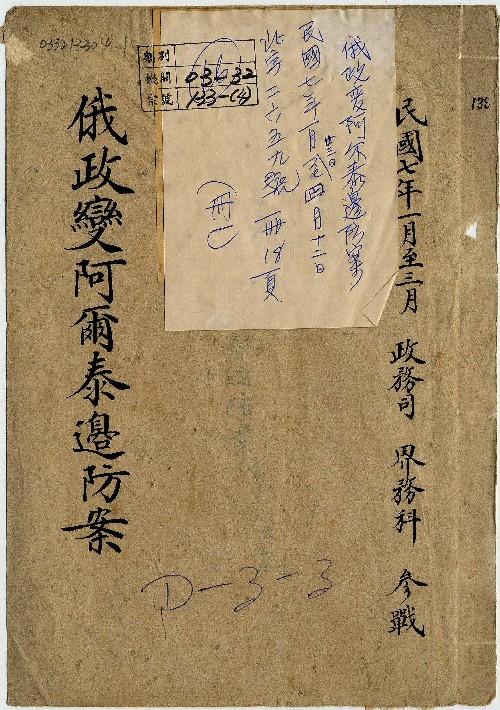 民國七年一月至三月 政務司 界務科 參戰
俄政變阿爾泰邊防案
俄政变阿尔泰邊防案
民國七年一月廿三日至四月十二日
北字二六五九號 一冊18頁
(冊一)
類別
機關 03-32
宗號 133-(4)
D-3-3